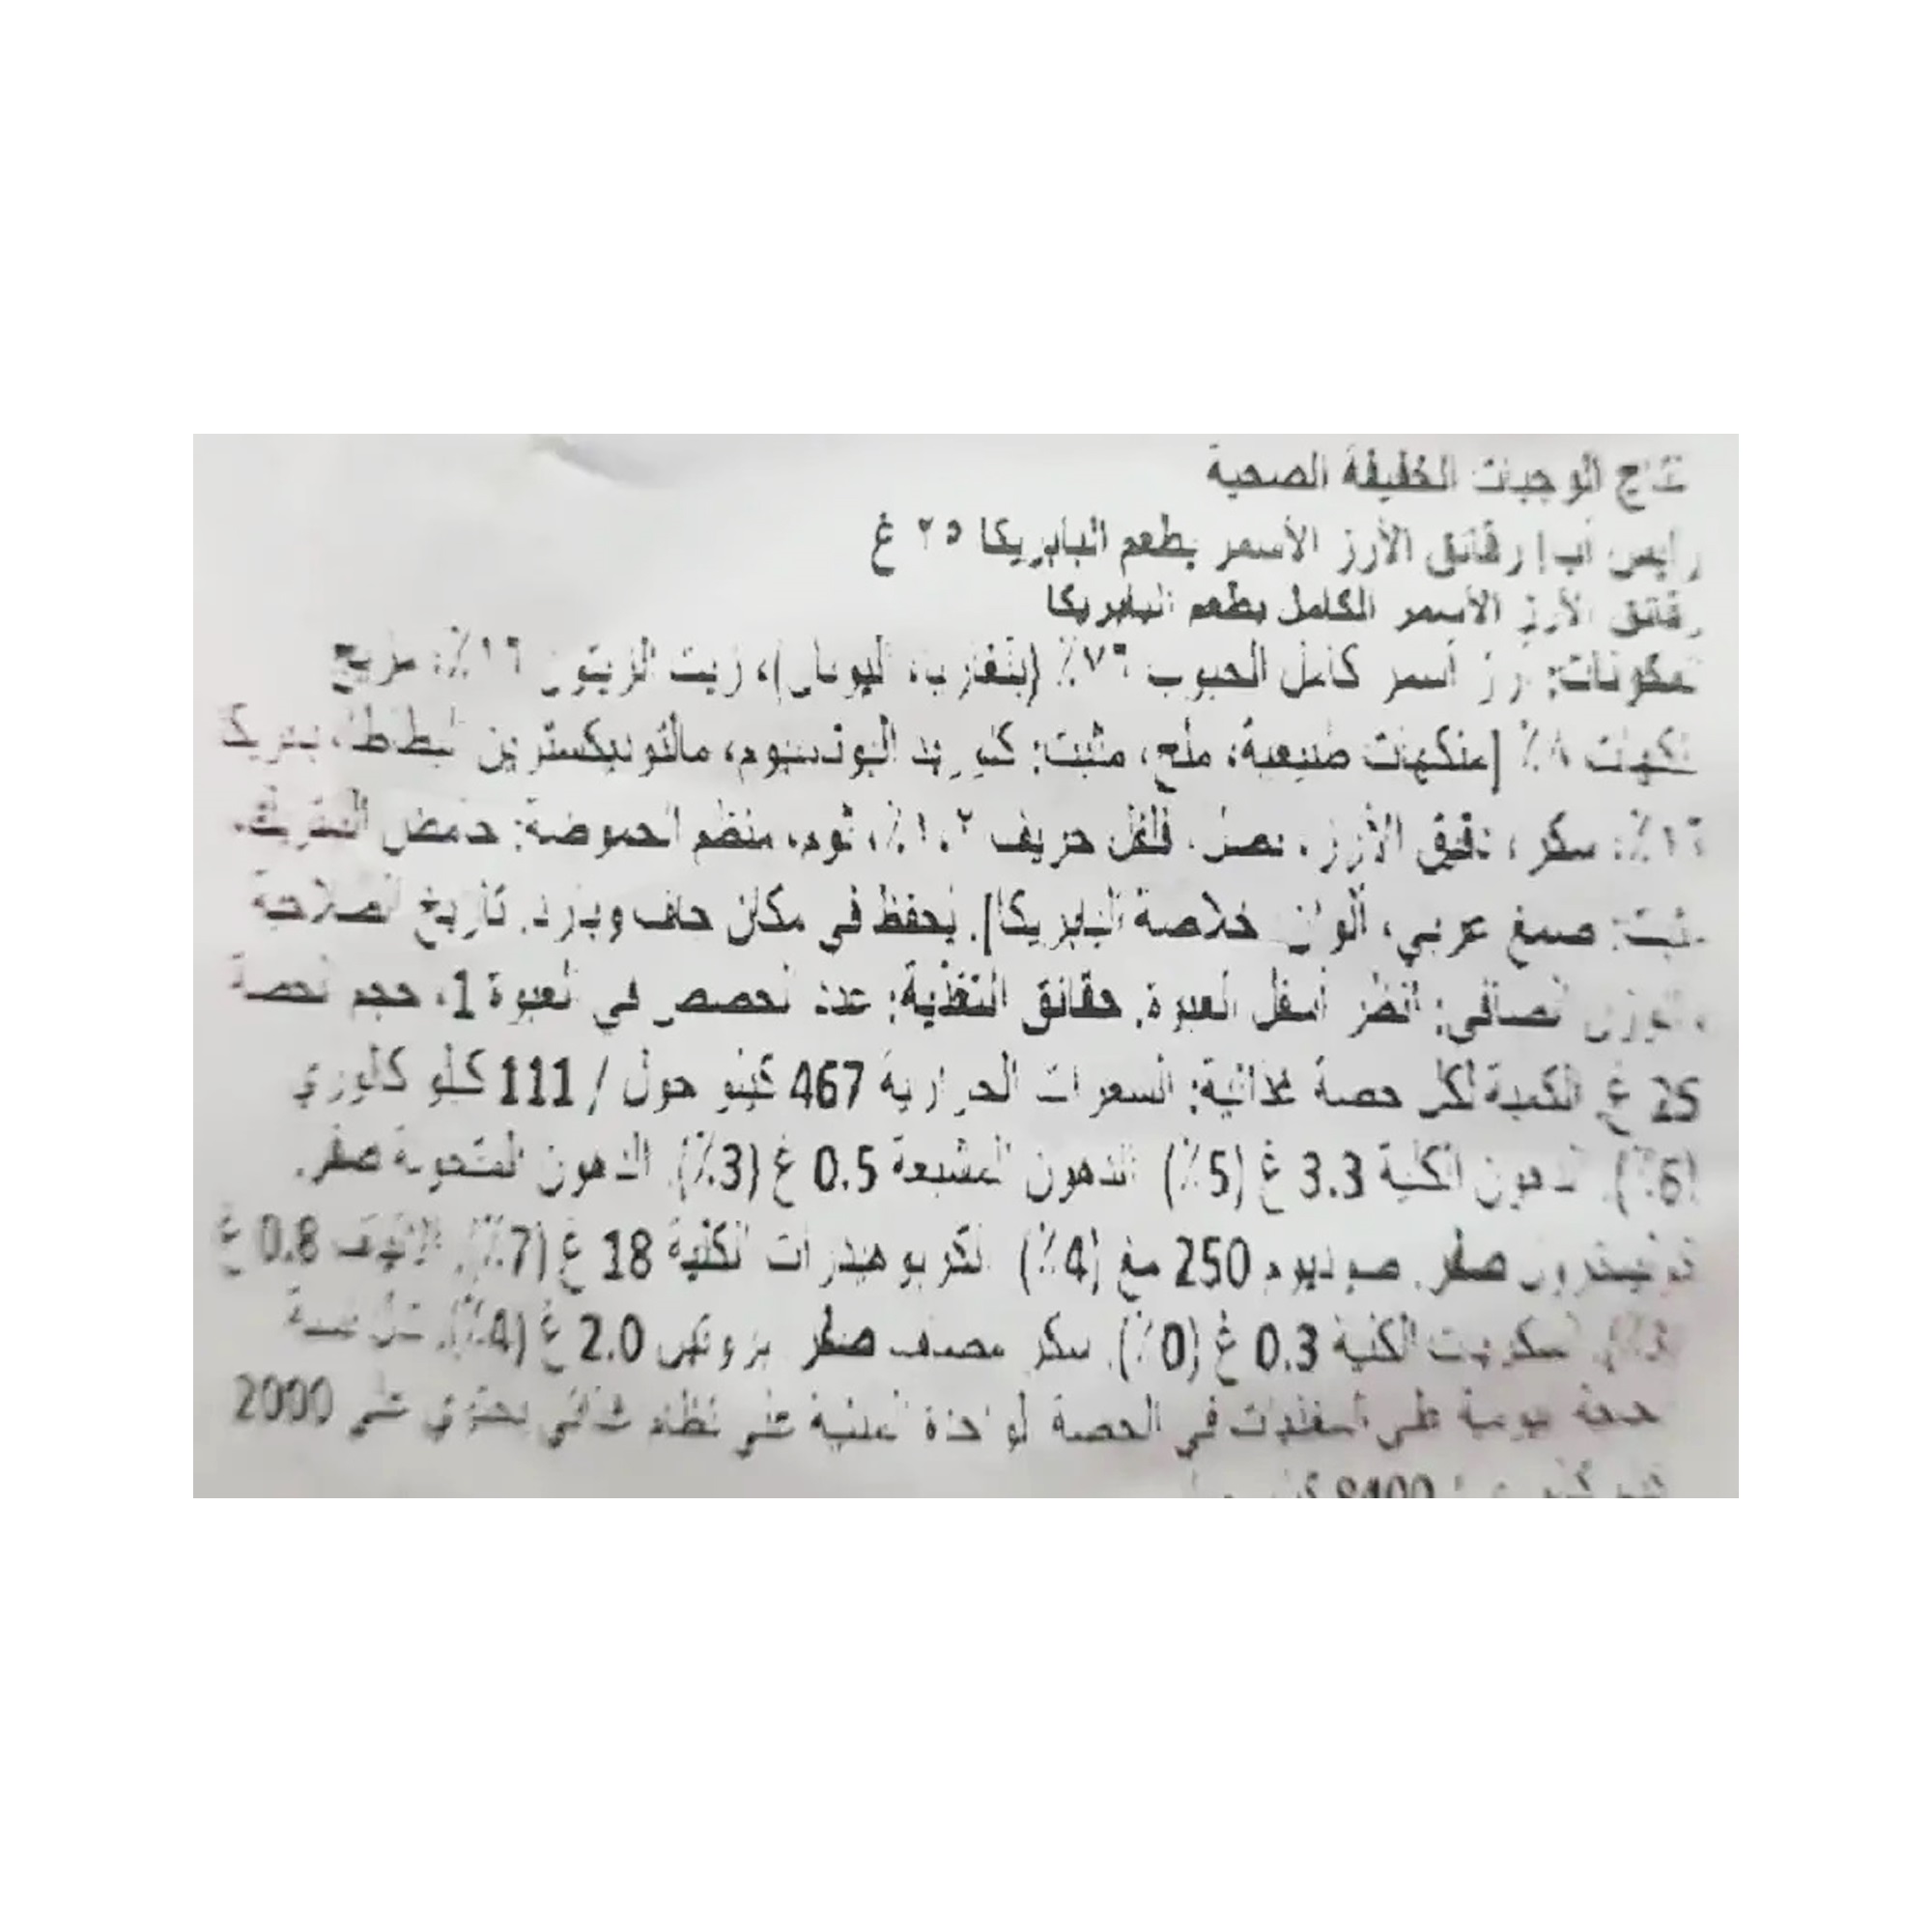 الوجبات الخفيفة الصحية
رايس أب | رقائق الأرز الأسمر بطعم البابريكا ٢٥ غ
رقائق الأرز الأسمر الكامل بطعم البابريكا
أرز أسمر كامل الحبوب ٧٦٪ (بلغاريا، اليونان)، زيت الزيتون ١٦٪، مزيج
نكهات ٨٪ [منكهات طبيعية، ملح، مثبت: كلوريد البوتاسيوم، مالتوديكسترين البطاطا، بابريكا
١٦٪، سكر، دقيق الأرز، بصل، فلفل حريف ١،٢٪، ثوم، منظم الحموضة: حامض الستريك،
مثبت: صمغ عربي، ألوان: خلاصة البابريكا]. يحفظ في مكان جاف وبارد. تاريخ الصلاحية
والوزن الصافي: انظر أسفل العبوة. حقائق التغذية: عدد الحصص في العبوة 1، حجم الحصة
25 غ الكمية لكل حصة غذائية: السعرات الحرارية 467 كيلو جول / 111 كيلو كالوري
(6٪). الدهون الكلية 3.3 غ (5٪) الدهون المشبعة 0.5 غ (3٪). الدهون المتحولة صفر.
صفر. صوديوم 250 مغ (4٪) الكربوهيدرات الكلية 18 غ (7٪). الألياف 0.8 غ
السكريات الكلية 0.3 غ (0٪). سكر مضاف صفر بروتين 2.0 غ (4٪).
يومية على في الحصة الواحدة مبنية على نظام غذائي يحتوي على 2000